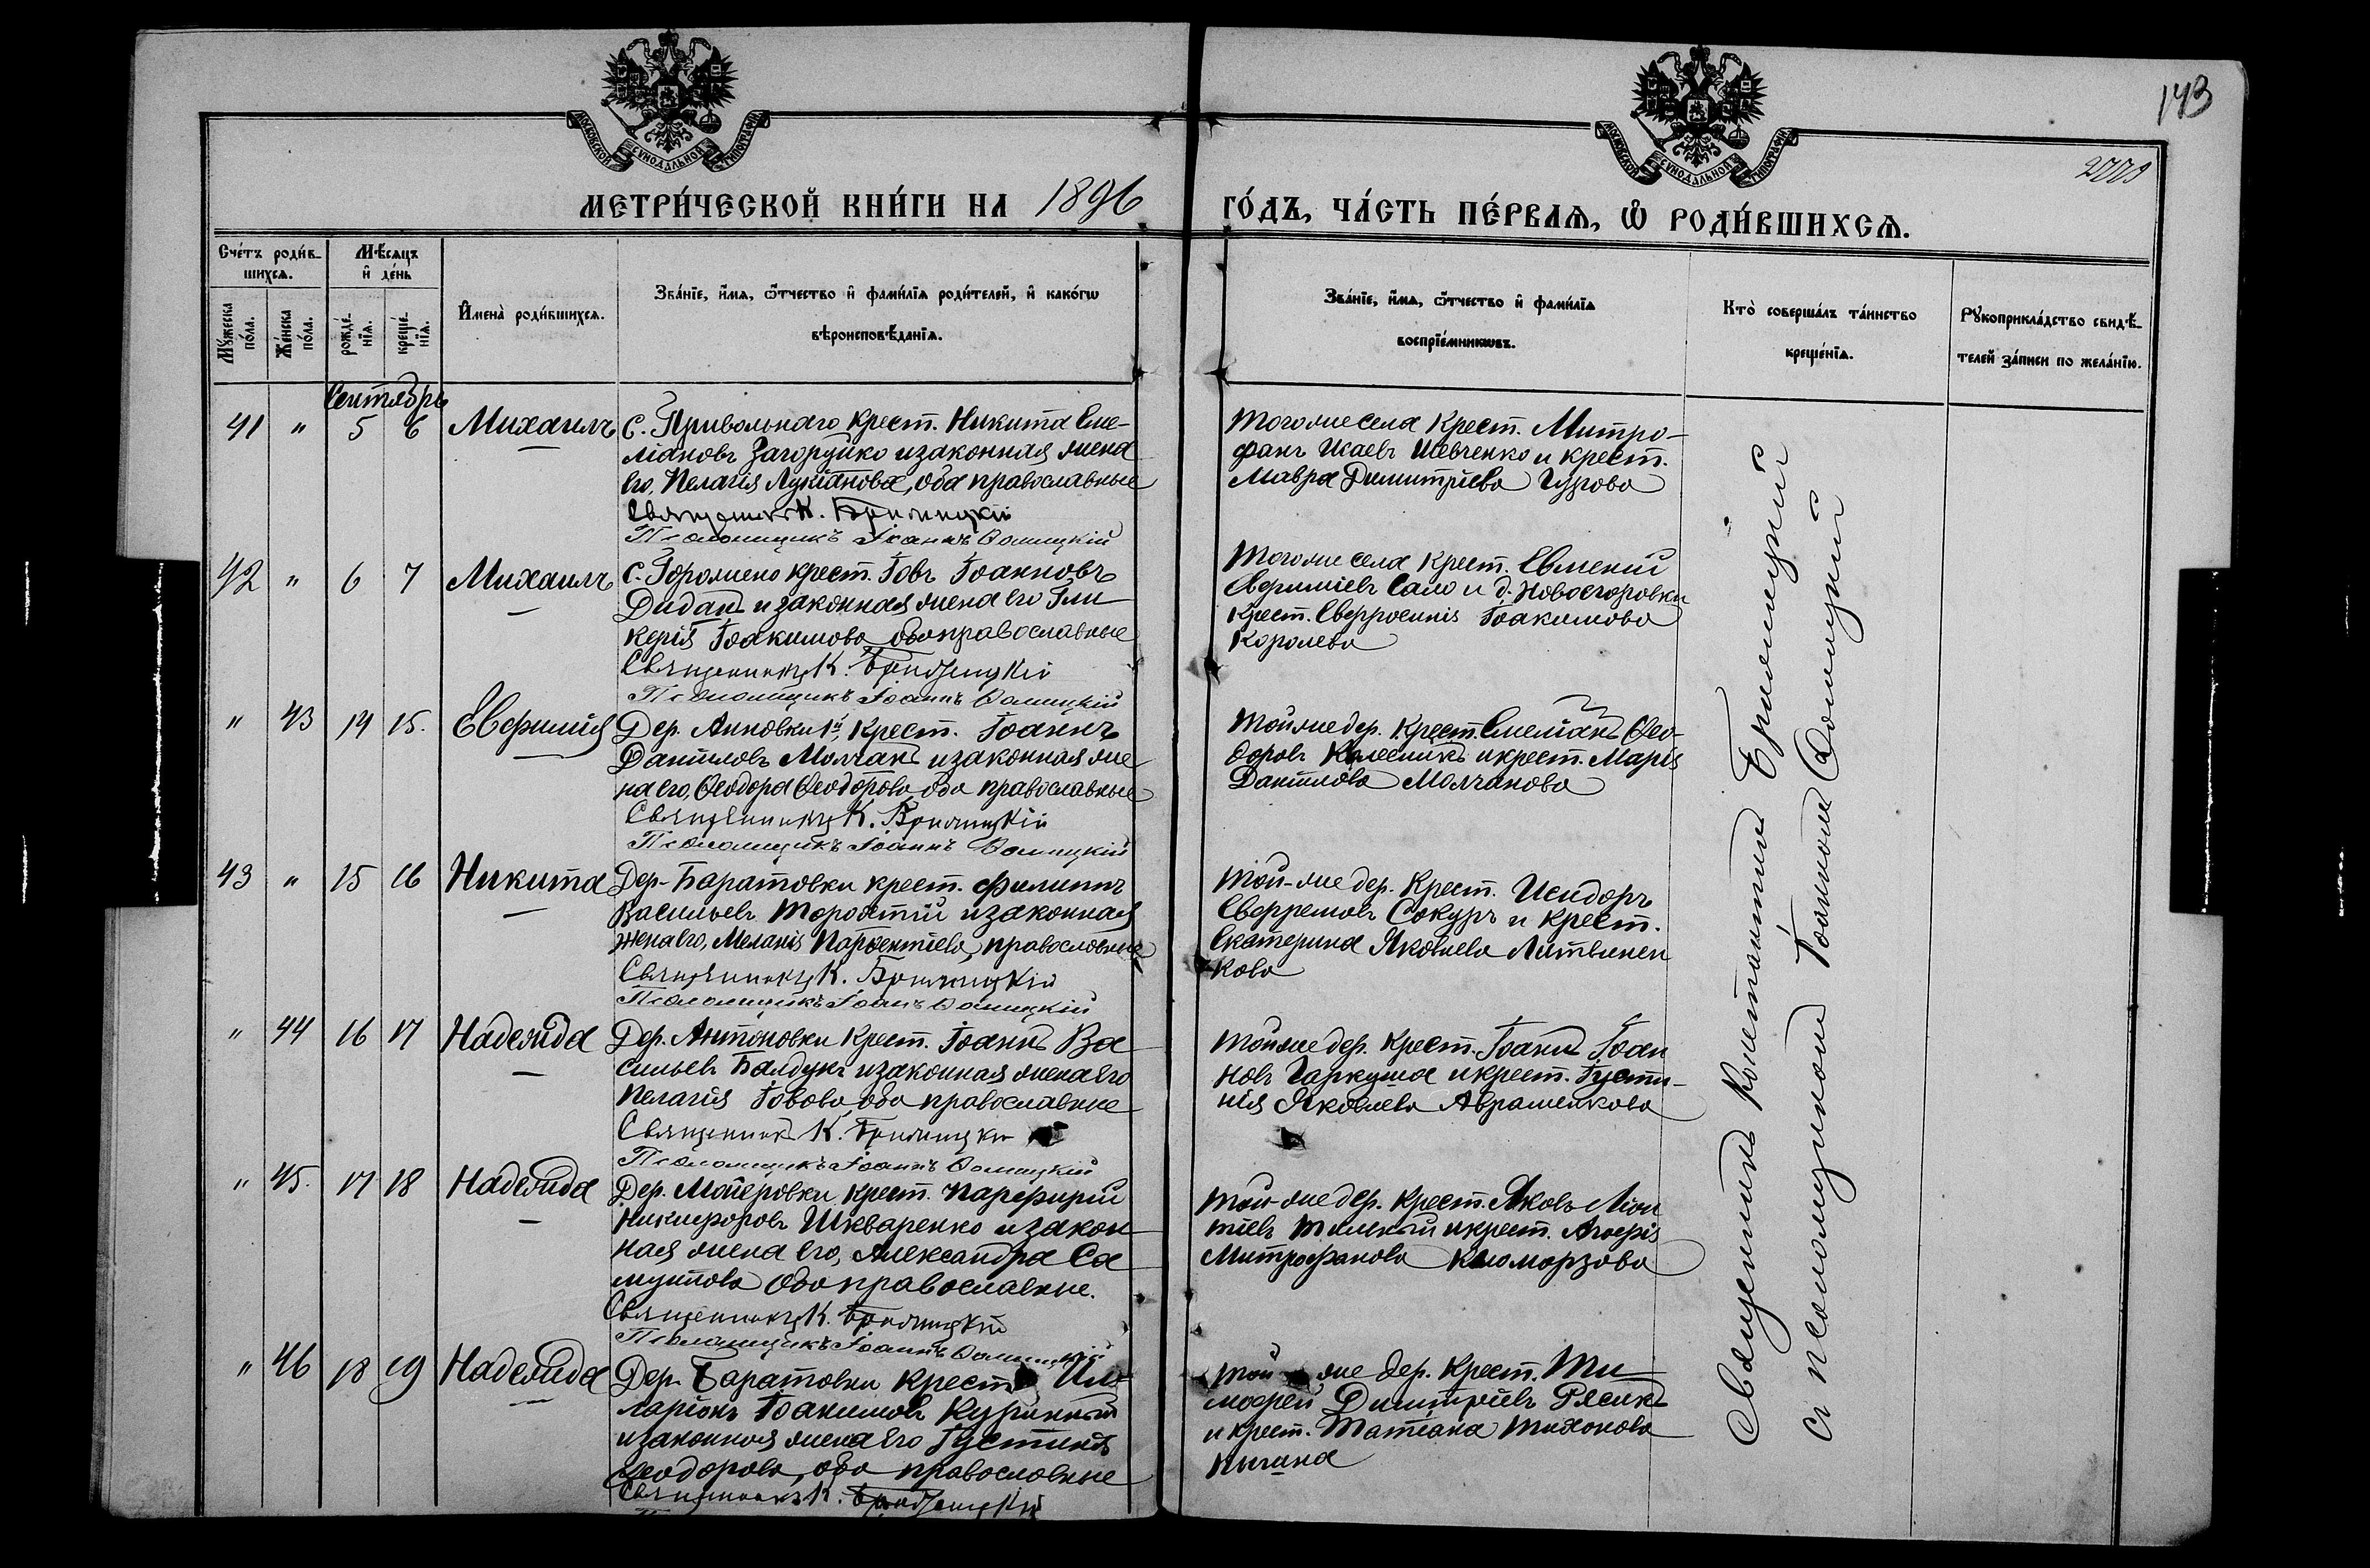 143
2009
МОСКОВСКОЙ СѴНОДАЛЬНОЙ ТИПОГРАФІИ
МОСКОВСКОЙ СѴНОДАЛЬНОЙ ТИПОГРАФІИ
МЕТРИ́ЧЕСКОЙ КНИ́ГИ НА 1896 ГО́ДЪ, ЧА́СТЬ ПЕ́РВАѦ, Ѽ РОДИ́ВШИХСѦ.
Сче́тъ роди́в-
шихсѧ.
Мѣ́сѧцъ
и҆ де́нь
Мꙋ́жеска
по́ла.
Же́нска
по́ла.
рожде́-
нїѧ.
креще́-
нїѧ.
И҆мена̀ роди́вшихсѧ.
Зва́нїе, и҆́мѧ, ѻ҆́тчество и҆ фами́лїѧ роди́телей, и҆ како́гѡ
вѣроисповѣ́данїѧ.
Зва́нїе, и҆́мѧ, ѻ҆́тчество и҆ фами́лїѧ
воспрїе́мникѡвъ.
Кто̀ соверша́лъ та́инство
креще́нїѧ.
Рꙋкоприкла́дство свидѣ́-
телей за́писи по жела́нїю.
Сентябрь
41 " 5 6 Михаилъ
С. Привольнаго крест. Никита Еме-
ліановъ Загоруйко и законная жена
его, Пелагія Лукіанова, оба православные
Священникъ К. Брижицкій
Псаломщикъ Іоаннъ Домицкій
Тогоже села крест. Митро-
фанъ Исаевъ Шевченко и крест.
Мавра Димитріева Гурова
42 " 6 7 Михаилъ
С. Горожено крест. Іовъ Іоанновъ
Дидан и законная жена его Гли-
керія Іоакимова оба православные
Священникъ К. Брижицкій
Псаломщикъ Іоаннъ Домицкій
Тогоже села крест. Евмений
Евфиміевъ Сало и д. Новоегоровки
крест. Евфросинія Іоакимова
Королева
" 43 14 15. Евфимія
Дер. Анновки 1й, крест. Іоаннъ
Даниловъ Молчан и законная же-
на его, Ѳеодора Ѳеодорова оба православные
Священникъ К. Брижицкій
Псаломщикъ Іоаннъ Домицкій
Той же дер. крест. Емеліан Ѳео-
доровъ Колесник и крест. Марія
Данилова Молчанова
43 " 15 16 Никита
Дер. Баратовки крест. Филиппъ
Васильевъ Торохтій и законная
жена его, Меланія Парѳентіева, православные
Священникъ К. Брижицкій
Псаломщикъ Іоаннъ Домицкій
Той-же дер. крест. Исидоръ
Евфремовъ Сокуръ и крест.
Екатерина Яковлева Литвинен
кова
" 44 16 17 Надежда
Дер. Антоновки крест. Іоанн Ва
сильевъ Балдукъ и законная жена его
Пелагія Іовова, оба православные
Священник К. Брижицкій
Псаломщикъ Іоаннъ Домицкій
Той же дер. крест. Іоанн Іоан
новъ Гаркуша и крест. Густи-
нія Яковлева Авраменкова
" 45. 17 18 Надежда
Дер. Майеровки крест. Парфирій
Никифоровъ Шкваренко и закон
ная жена его, Александра Са
муилова оба православные.
Священникъ К. Брижицкій
Псаломщикъ Іоаннъ Домицкій
Той-же дер. крест. Яковъ Леон
тіевъ и крест. Агафія
Митрофанова
" 46 18 19 Надежда
Дер. Баратовки крест. Ила-
ріонъ Іоакимовъ Куринный
и законная жена его Густинія
Ѳеодорова, оба православные
Священникъ К. Брижицкій
Той же дер. крест. Ти-
моѳей Димитріевъ Рясик
и крест. Татіана Тихонова
Кигина
Священник Константин Брижицкий
съ псаломщиком Іоанном Домицкий